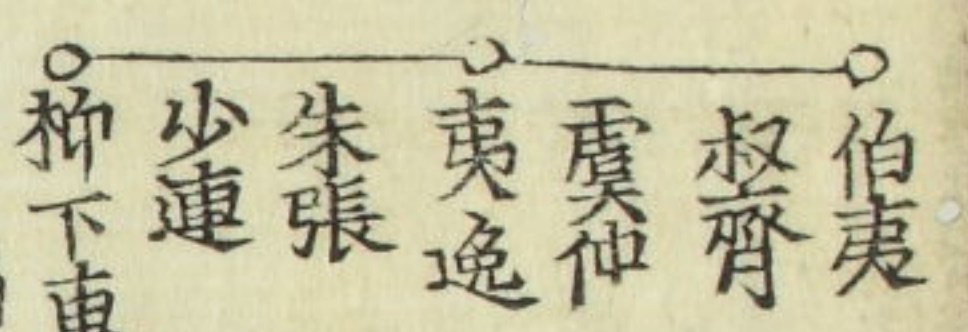 伯夷
叔齊
虞仲
夷逸
朱張
少連
柳下東